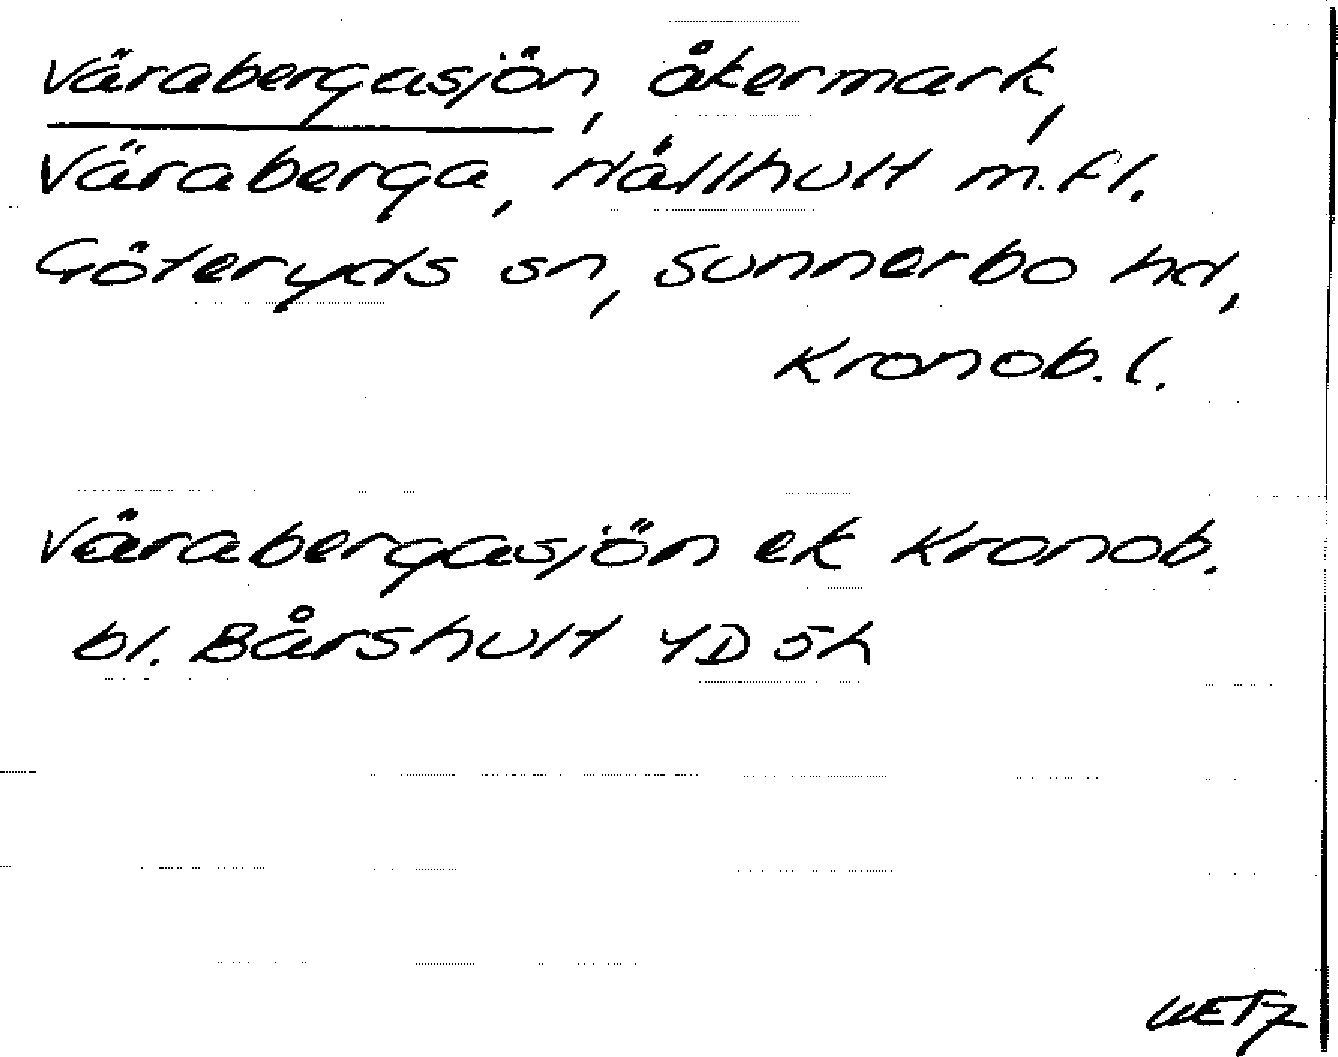 Värabergasjön, åkermark,
Väraberga, Hållhult m.fl.
Göteryds sn, Sunnerbo hd,
Kronob. l.
Värabergasjön ek Kronob.
bl. Bårshult 4D 5h